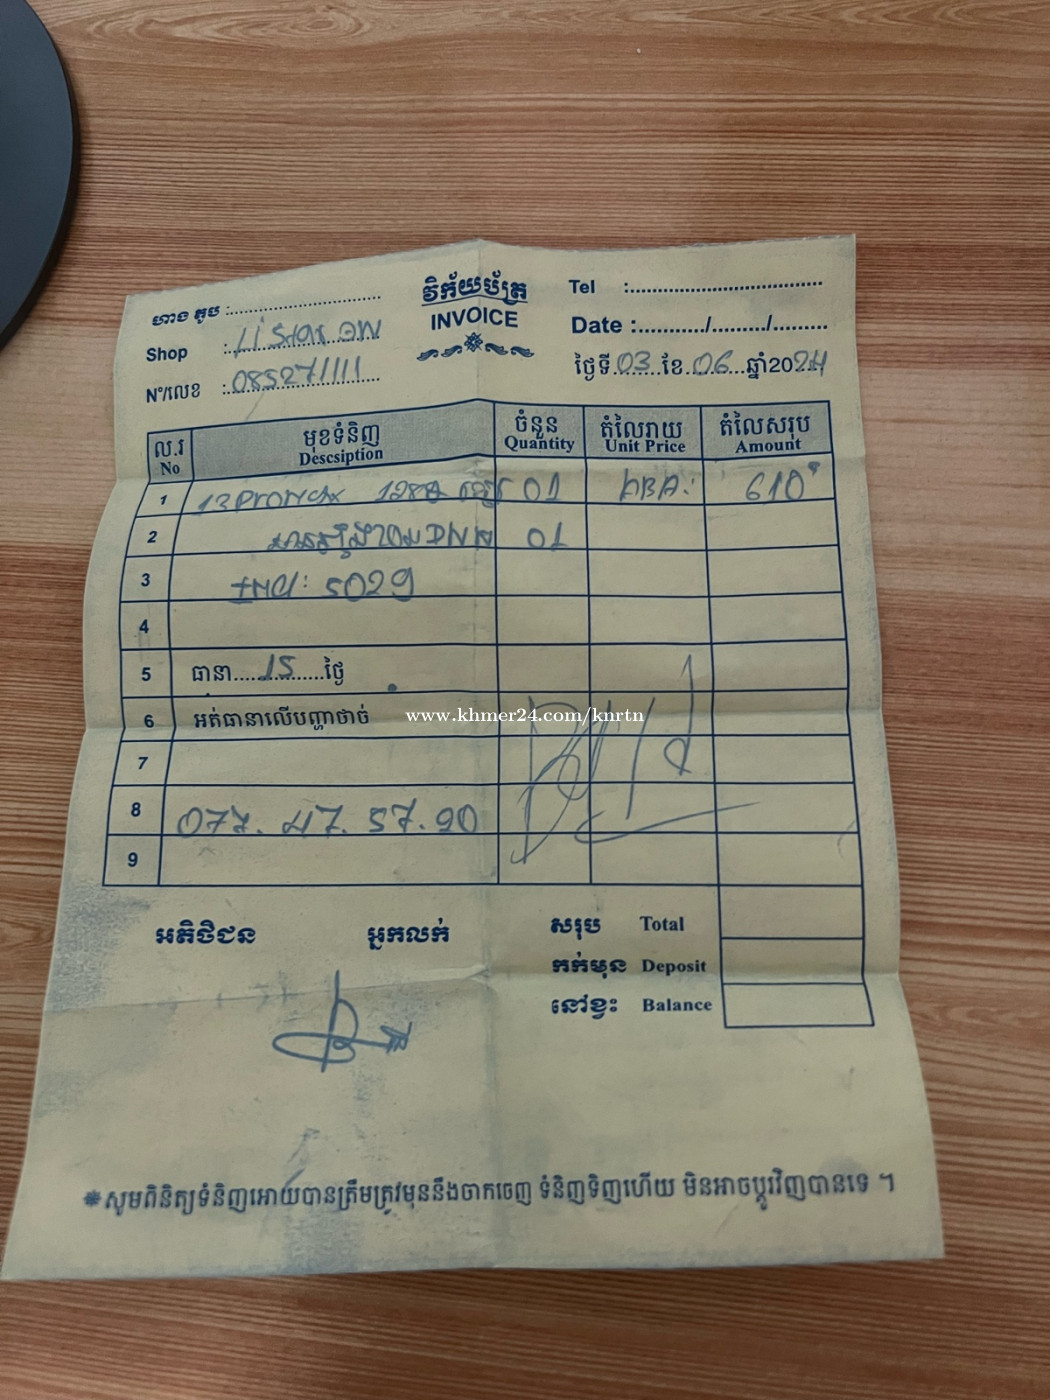 ហាង តូប :
វិក័យប័ត្រ
Tel :
Shop :
INVOICE
Date :........../........./.........
N°/លេខ : 085271111
ថ្ងៃទី.03.ខែ.06.ឆ្នាំ2024
ល.រ មុខទំនិញ ចំនួន តំលៃរាយ តំលៃសរុប
No Descsiption Quantity Unit Price Amount
1 13 Promax 128 01 ABA: 610$
2 01
3 5029
4
5 ធានា 15 ថ្ងៃ
6 អត់ធានាលើបញ្ហាថាច់
www.khmer24.com/knrtn
7
8 077. 47. 57. 90
9
អតិថិជន អ្នកលក់ សរុប Total
កក់មុន Deposit
នៅខ្វះ Balance
*សូមពិនិត្យទំនិញអោយបានត្រឹមត្រូវមុននឹងចាកចេញ ទំនិញទិញហើយ មិនអាចប្តូរវិញបានទេ ។